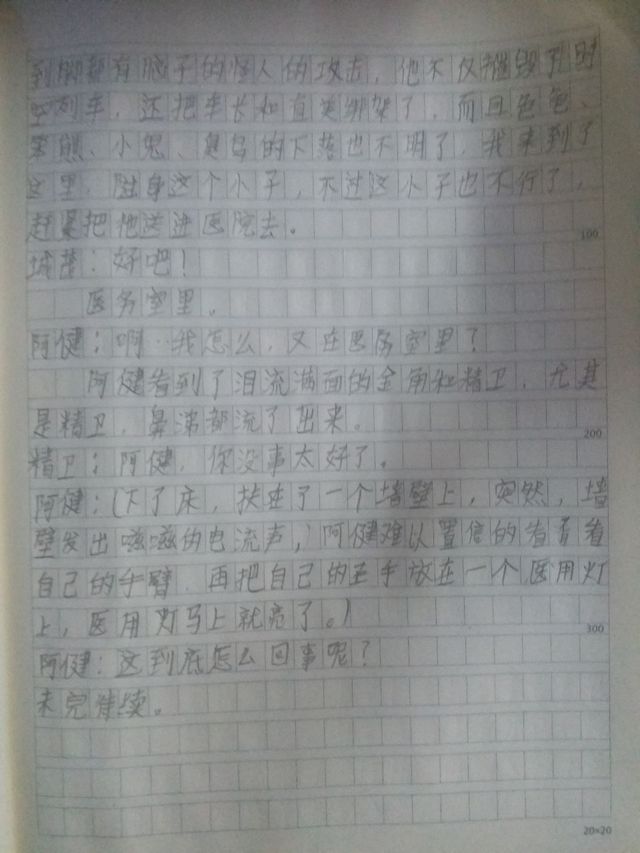 到脚都有脑子的怪人的攻击，他不仅摧毁了时
空列车，还把车长和直美绑架了，而且爸爸、
笨熊、小鬼、臭鸟的下落也不明了，我来到了
这里，附身这个小子，不过这小子也不行了，
赶紧把他送进医院去。
100
城楚：好吧！
医务室里。
阿健：啊…我怎么，又在医务室里？
阿健看到了泪流满面的金角和精卫，尤其
是精卫，鼻涕都流了出来。
200
精卫：阿健，你没事太好了。
阿健：（下了床，扶在了一个墙壁上，突然，墙
壁发出嗞嗞的电流声，）阿健难以置信的看看着
自己的手臂，再把自己的手放在一个医用灯
上，医用灯马上就亮了。）
300
阿健：这到底怎么回事呢？
未完待续。
20×20